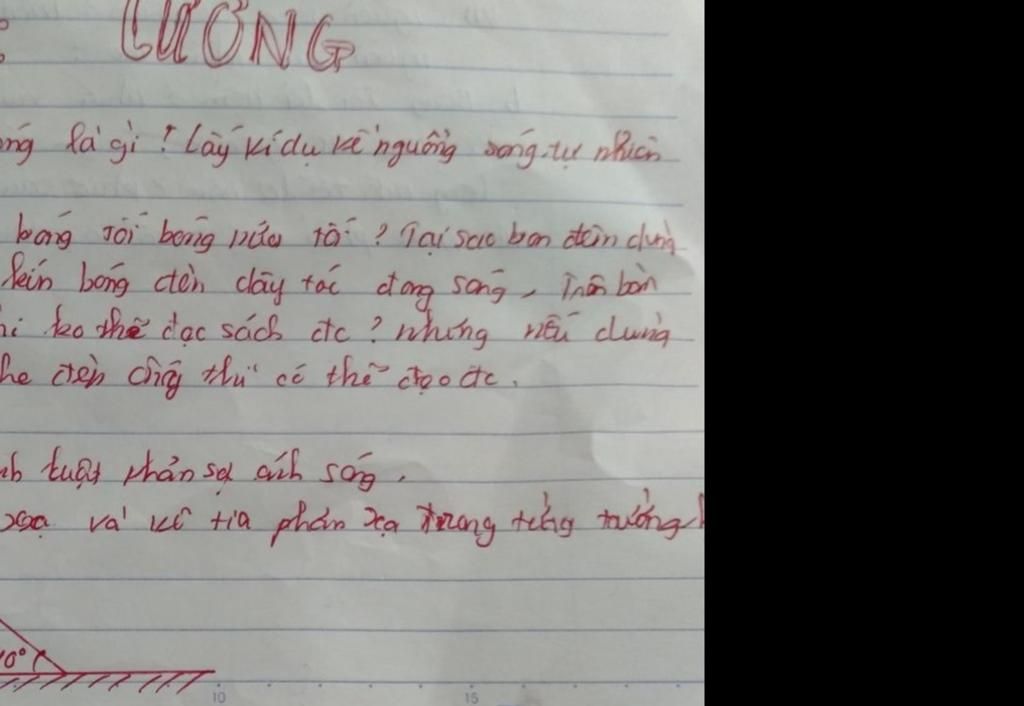 CƯƠNG
ống là gì ? Lấy ví dụ về nguồng sống tự nhiên
bóng tối bóng nửa tối ? Tại sao ban đêm dùng
bóng đèn dây tóc đang sáng, Trên bàn
ko thể đọc sách đc ? nhưng nếu dung
đèn ống thì có thể đọc đc.
luật phản sạ ánh sáng.
xạ và vẽ tia phản xạ trong từng trường
0°
10
15